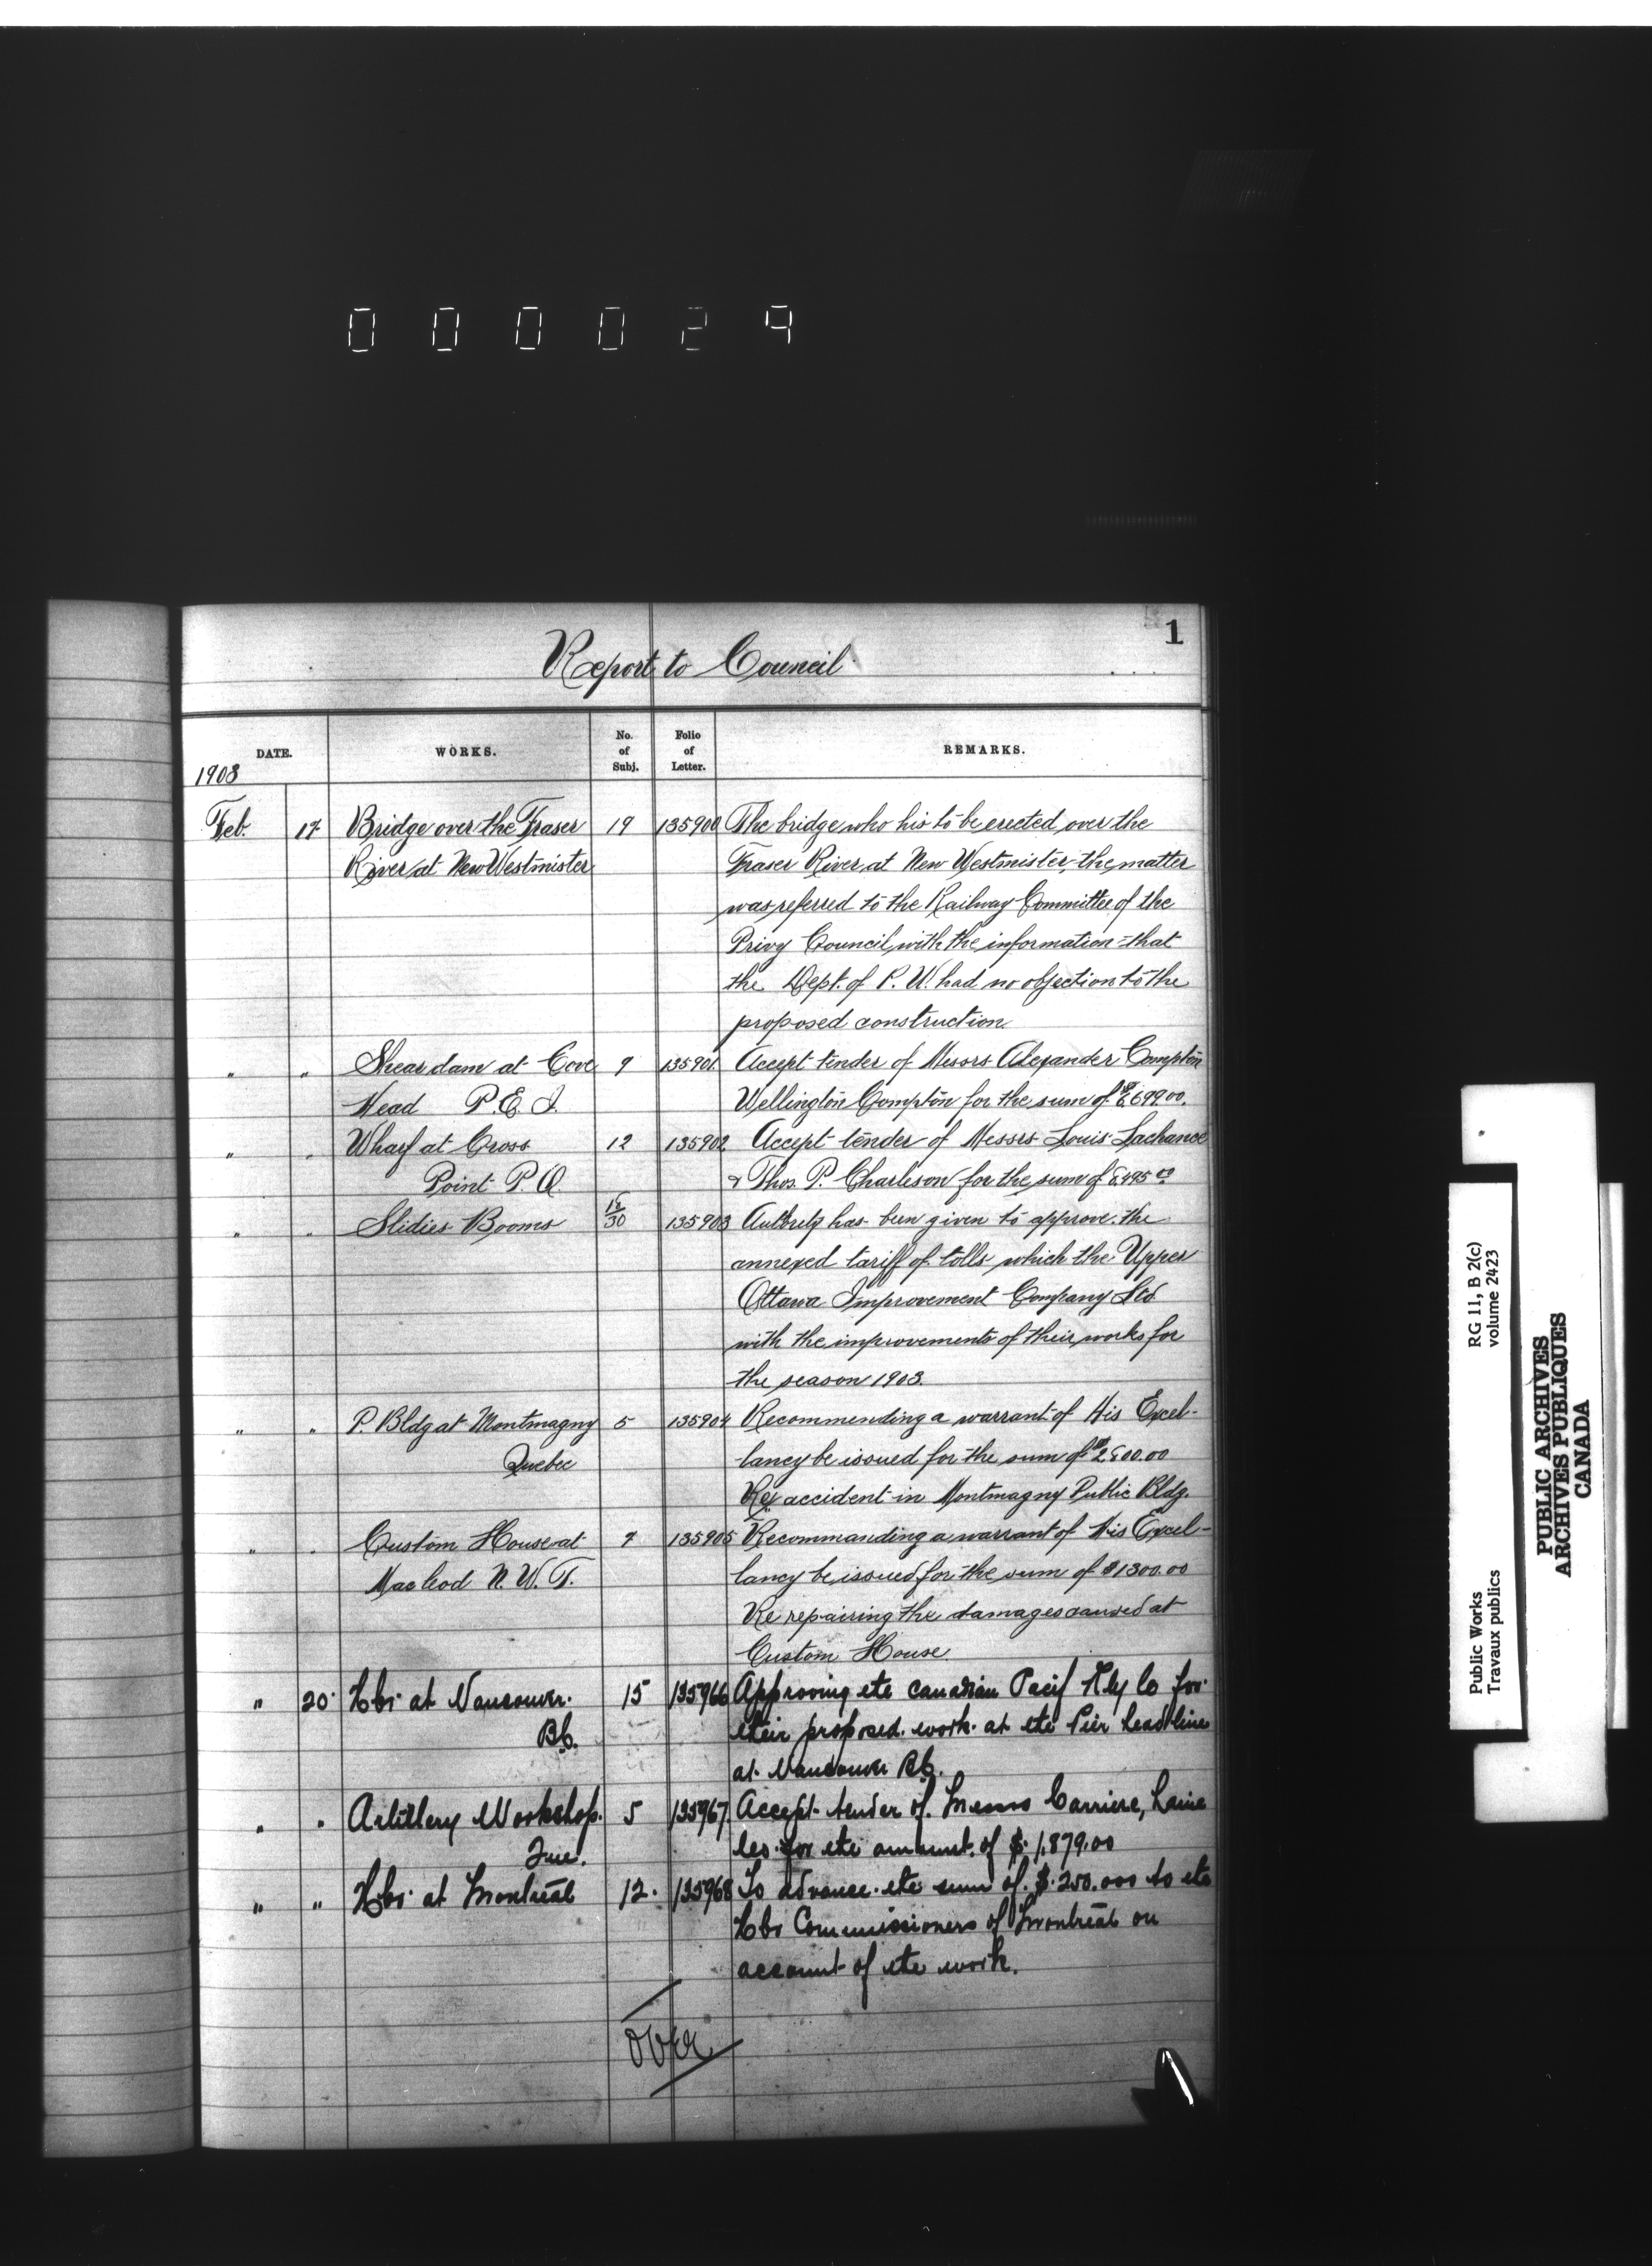 000029
1
Report to Council
DATE. WORKS. No. of Subj. Folio of Letter. REMARKS.
1903
Feb. 17 Bridge over the Fraser 19 135900 The bridge who his to be erected over the
River at New Westmister Fraser River at New Westmister, the matter
was referred to the Railway Committee of the
Privy Council, with the information that
the Dept. of P. W. had no objection to the
proposed construction.
" " Shear dam at Cove 9 135901 Accept tender of Messrs Alexander Compton
Head P. E. I. Wellington Compton for the sum of $6,699.00.
" " Wharf at Cross 12 135902 Accept tender of Messrs Louis Lachance
Point P. Q. & Thos. P. Charleson for the sum of 6,495.00
" " Slidies Booms 16/30 135903 has been given to approve the
annexed tariff of tolls which the Upper
Ottawa Improvement Company Ltd
with the improvements of their works for
the season 1903.
" " P. Bldg at Montmagny 5 135904 Recommending a warrant of His Excel-
Quebec lancy be issued for the sum of $2800.00
Re accident in Montmagny Public Bldg.
" " Custom House at 7 135905 Recommanding a warrant of His Excel-
Macleod N. W. T. lancy be issued for the sum of $1300.00
Re repairing the damages caused at
Custom House
" 20 Hbr at Vancouver 15 135966 Approving the Canadian Pacif Rly Co for
BC. their proposed work at the Pier headline
at Vancouver BC.
" " Artillery Workshop 5 135967 Accept tender of Messrs Carriere, Laine
Que. Co for the amount of $1,879.00
" " Hbr at Montreal 12 135968 To advance the sum of $250.000 to the
Hbr Commissioners of Montreal on
account of the work.
over
Public Works RG 11, B 2(c)
Travaux publics volume 2423
PUBLIC ARCHIVES
ARCHIVES PUBLIQUES
CANADA